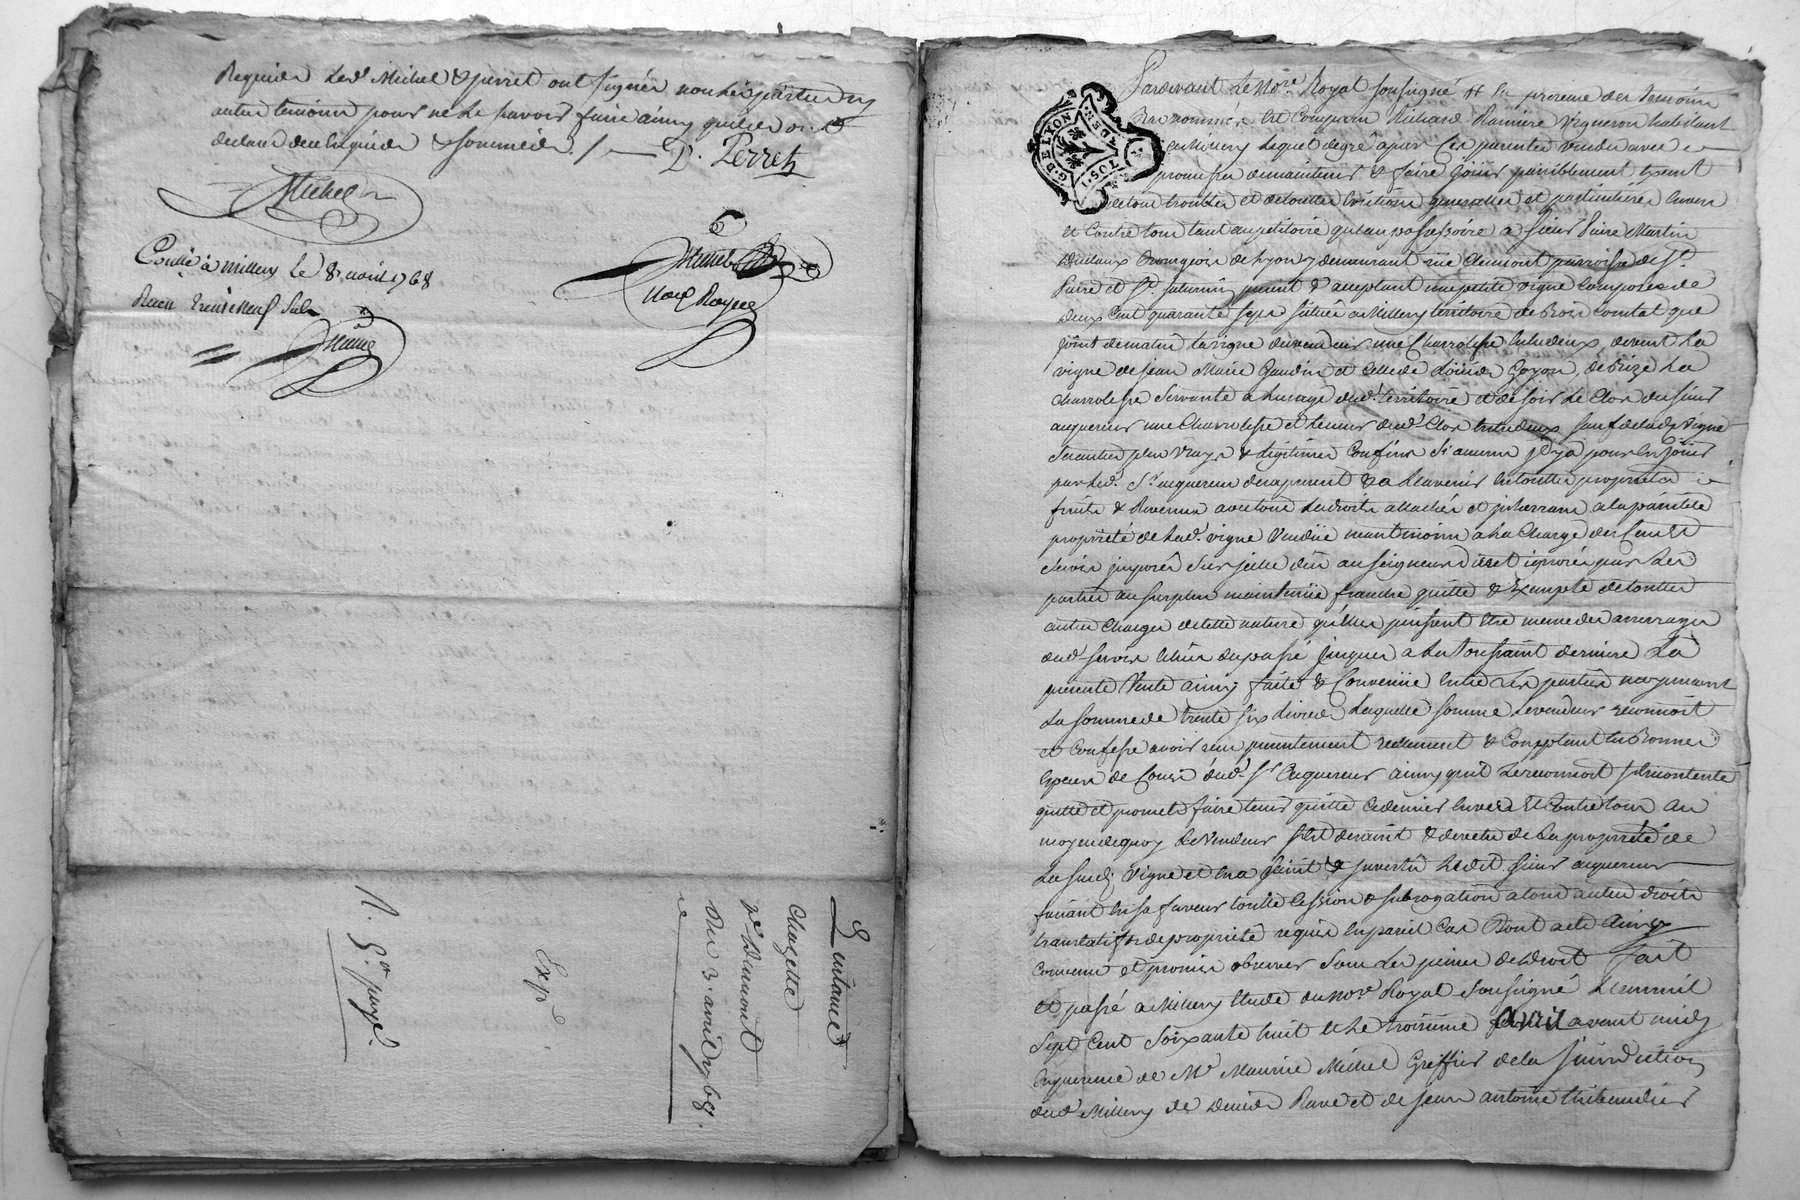 Requis Led. Michel & perret ont signés non les parties ny
autre temoins pour ne le scavoir faire ainsy quils ont
declaré de ce enquis & sommés. /. P. Perret
Michel
Michel
Not Royal
Controllé à Millery le 8 avril 1768
Recu trente neuf sols
Michel
Quitance
Chazette
Du 3 avril 1768.
Exp
G. DE LYON
Pardevant Le No.re Royal soussigné & En presence des temoins
bas nommés Est Comparu Richard vigneron habitant
à Millery Lequel de gré à par Ces presentes vendu avec
promesse de maintenir & faire joüir paisiblement exempt
de tout troubles et de touttes Evictions generalles et particulieres Envers
et Contre tous tant au petitoire qu'au possessoire a sieur Martin
Bourgeois de Lyon y demeurant rüe Clermont parroisse de St.
Pierre et St. Saturnin present & acceptant une petite vigne Composée de
deux Cent quarante sept située à Millery territoire de Bois Comtal que
joint de matin La vigne du vendeur une Charrolesse Entredeux, de vent La
vigne de jean Marie Gaudin et Celle de Goyon, de bize La
Charrolesse servante a Lusage dud. territoire et de soir Le Clos du sieur
acquereur une Charrolesse et terrier dud. Clos Entredeux sauf de lad. vigne
ses autres plus vrays & Legitimes Confins si aucuns jl y a pour En joüir
par Led. Sr. acquereur des a present & a Lavenir En toutte proprieté
fruits & Revenus avec tous Les droits attachés et jnherrans a la
proprieté de Lad. vigne Vendüe neantmoins a La Charge des Cens &
servis jmposés sur jcelle dûs au seigneur direct ignorés par Les
parties au surplus maintenüe franche quitte & Exempte de touttes
autres Charges de cette nature qu'elles puissent Etre meme des arrerages
dud. servis Echûs du passé jusques a La Toussaint derniere La
presente Vente ainsy faite & Convenüe Entre Les parties moyennant
La somme de trente six Livres Laquelle somme Le vendeur reconnoit
et Confesse avoir recu presentement reellement & Comptant En Bonnes
Especes de Cours dud. Sr. Acquereur ainsy quil Le reconnoit s'en contente
quitte et promet faire tenir quitte Ce dernier Envers Et Contre tous au
moyen de quoy Le Vendeur s'est demis & devetu de La proprieté de
La susd. vigne et En a saisi & jnvestu Ledit sieur acquereur
faisant En sa faveur toutte Cession & subrogation a tous autres droits
translatifs de proprieté requis En pareil Cas Dont acte Ainsy
Convenu et promis observer sous Les peines de droit fait
et passé a Millery Etude du No.re Royal soussigné L'an mil
sept Cent soixante huit Et Le troisieme avril avant midy
En presence de Me Maurice Michel Greffier de la Jurisdiction
dud. Millery de et de jean antoine thibaudier